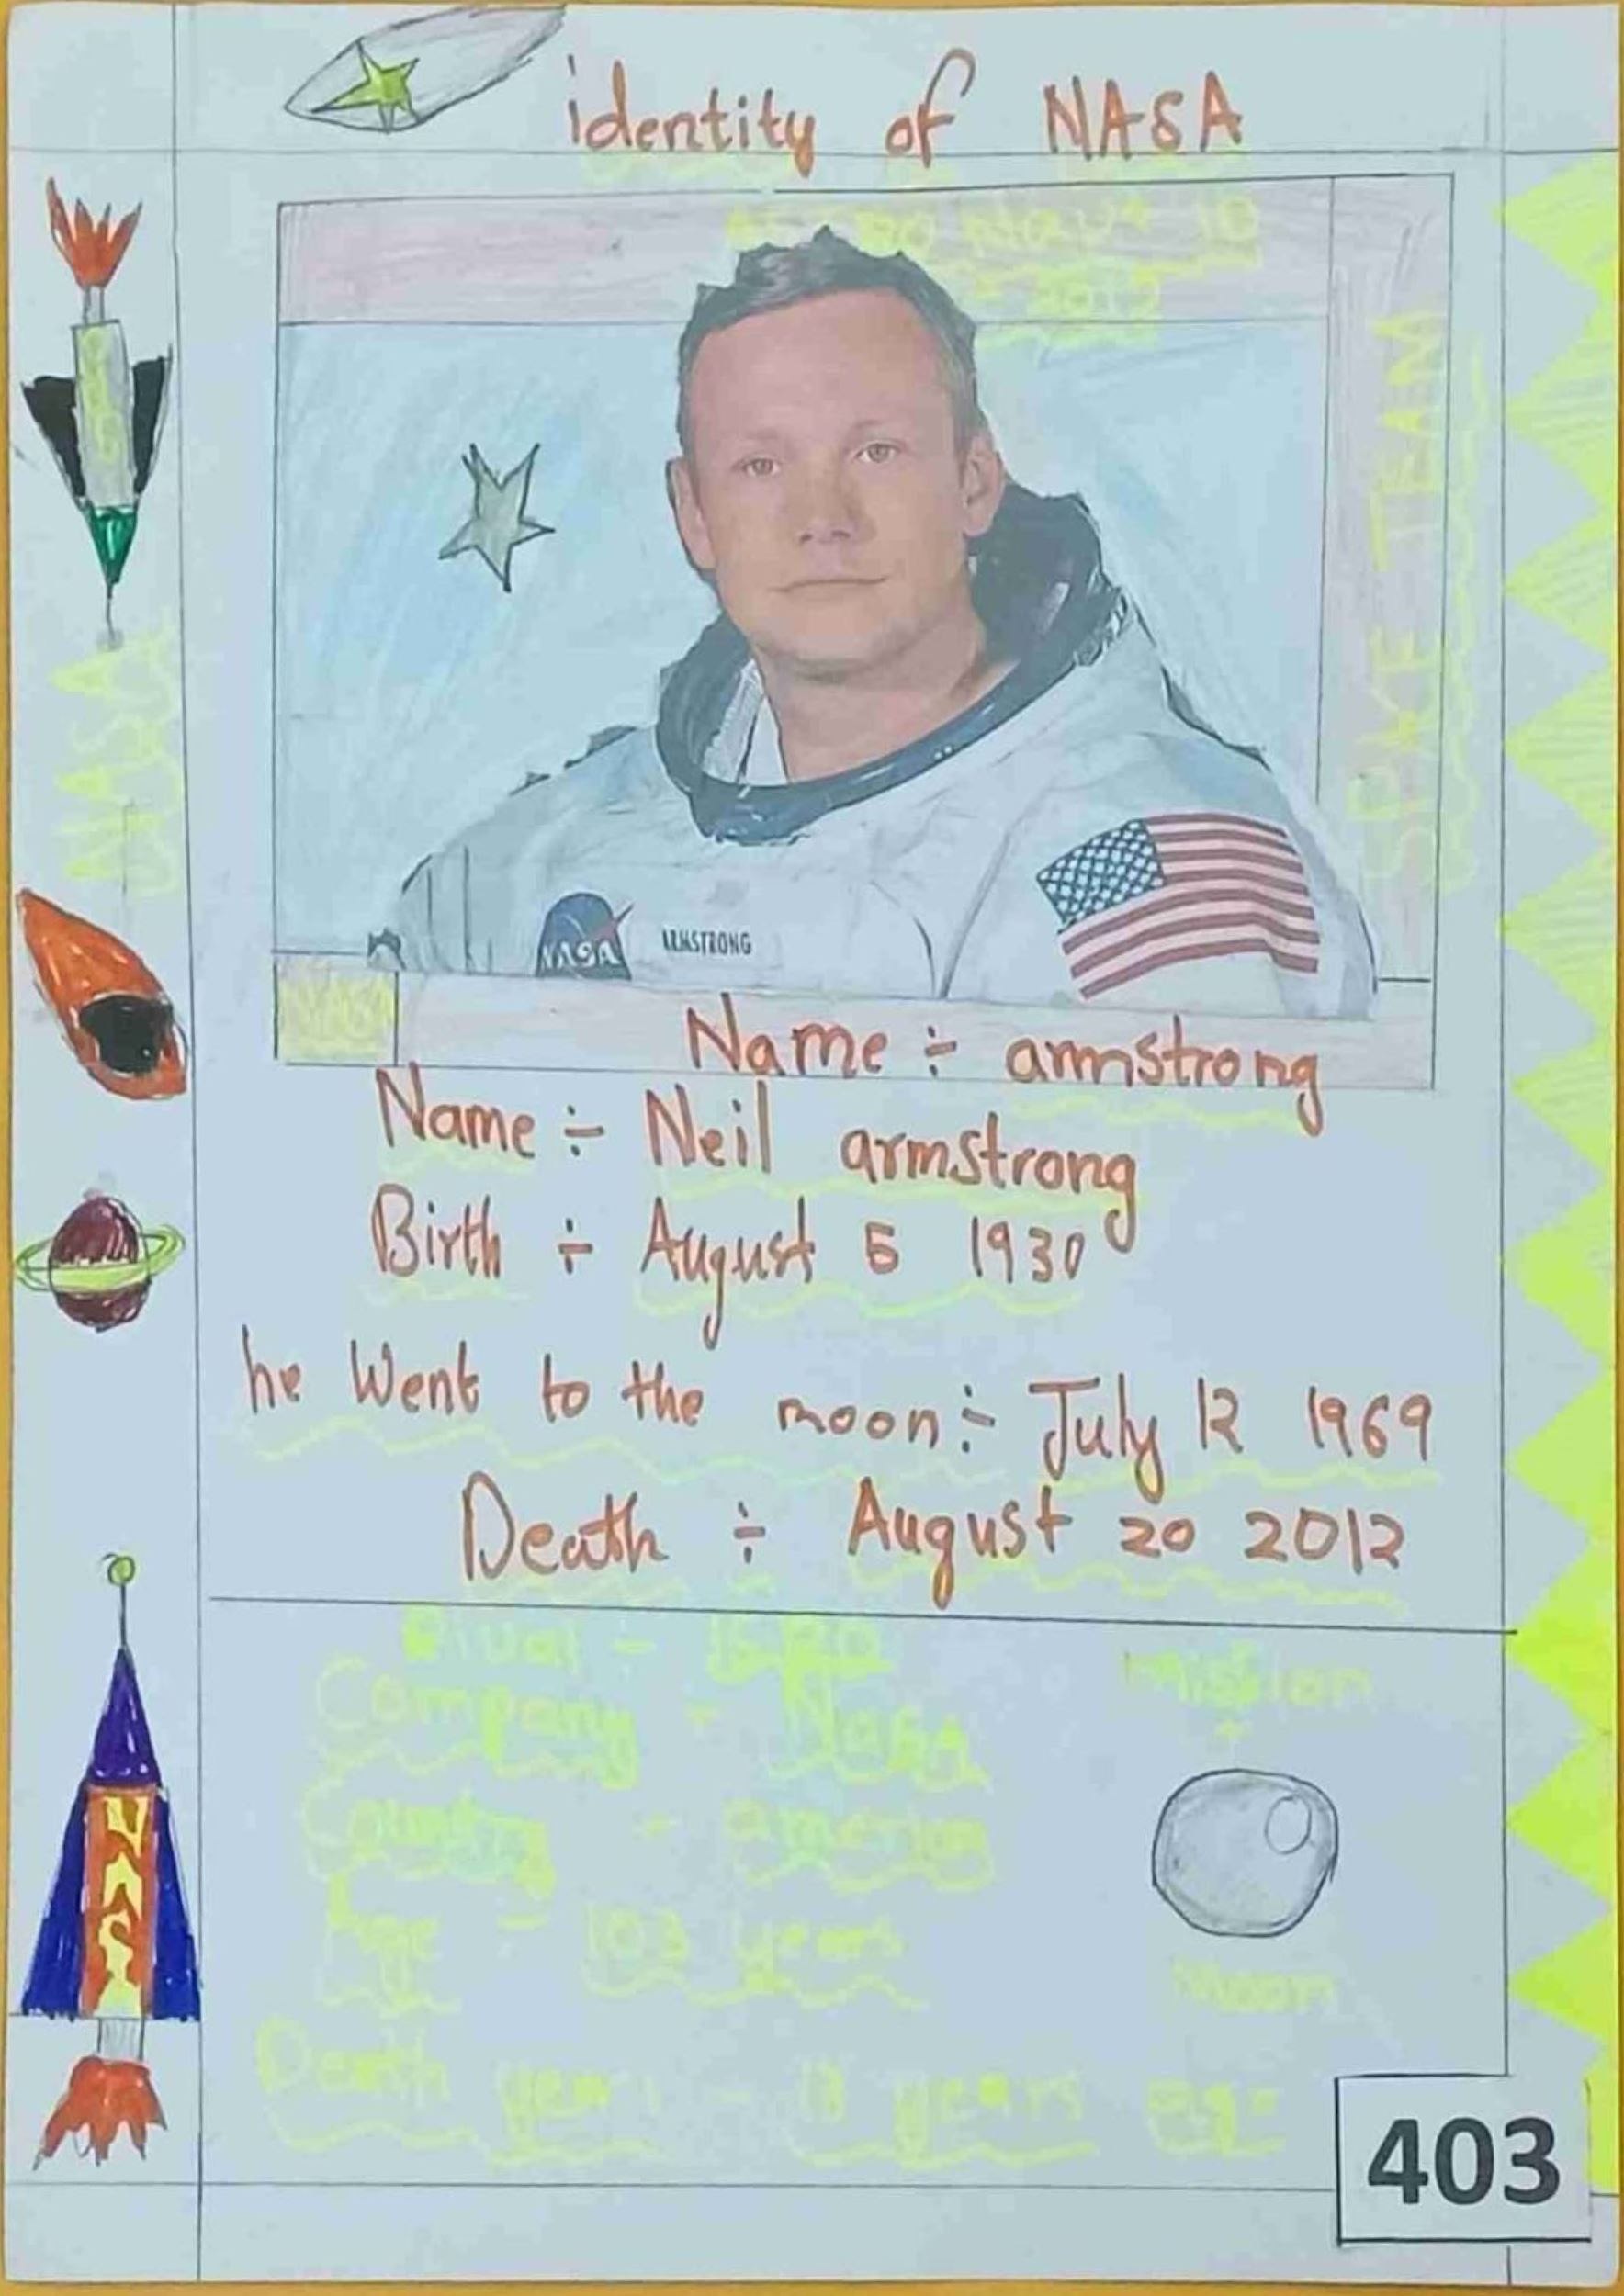 identity of NASA
SPACE TEAM
NASA
NASA
ARMSTRONG
NASA
Name ÷ armstrong
Name ÷ Neil armstrong
Birth ÷ August 5 1930
he Went to the moon ÷ July 12 1969
Death ÷ August 20 2012
Company - Nasa
Mission
Country - america
Age - 103 years
moon
Death year - 13 years ago
NASA
403